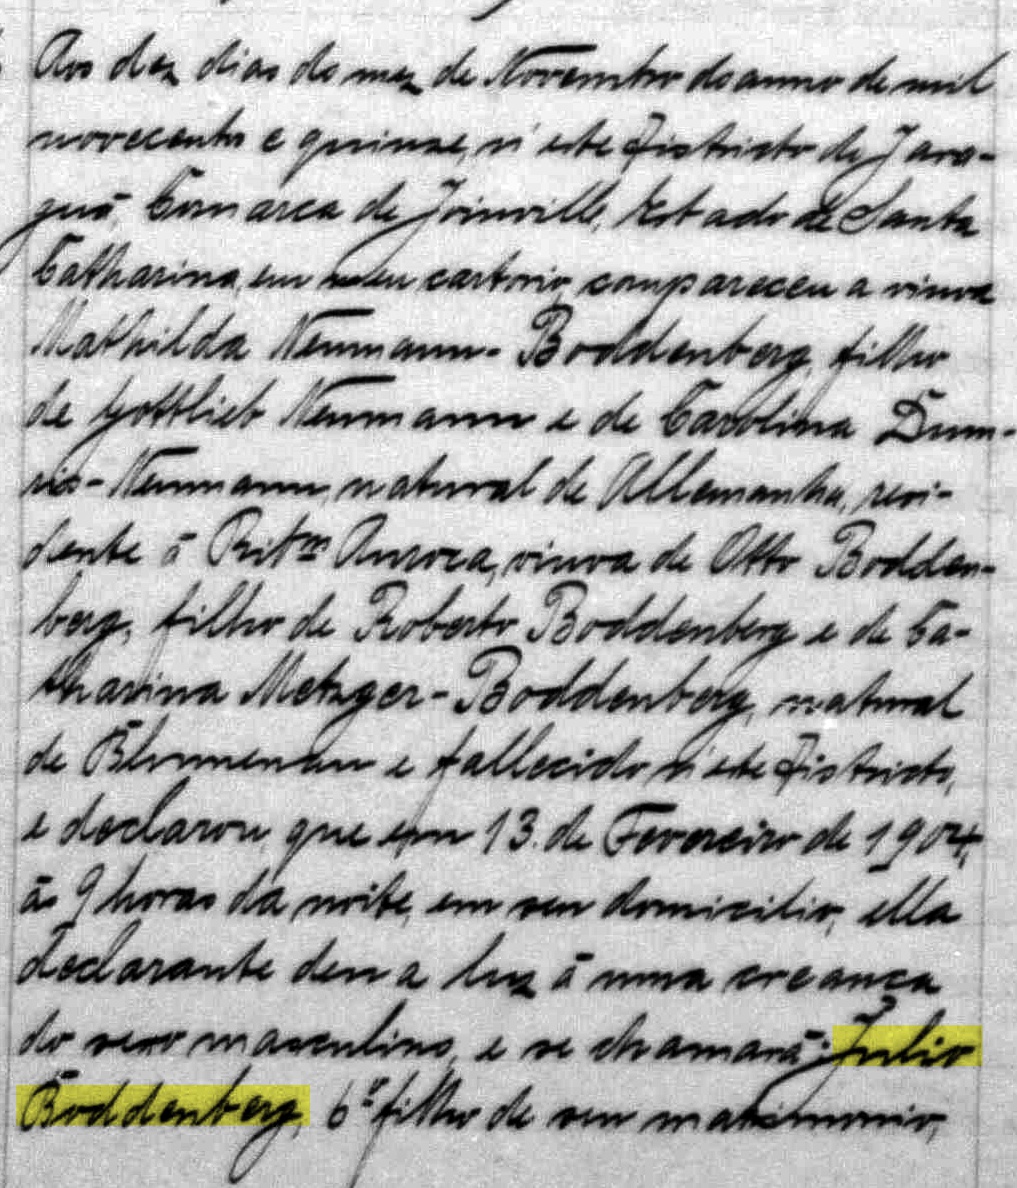 Aos dez dias do mez de Novembro do anno de mil
novecentos e quinze, n'este Districto de Jara-
guá, Comarca de Joinville, Estado de Santa
Catharina, em meu cartorio, compareceu a viuva
Mathilda Neumann-Boddenberg, filha
de Gottlieb Neumann e de Carolina Dum-
-Neumann, natural de Allemanha, resi-
dente á Ritª Aurora, viuva de Otto Bodden-
berg, filho de Roberto Boddenberg e de Ca-
tharina Metzger-Boddenberg, natural
de Blumenau e fallecido n'este Districto,
e declarou que em 13. de Fevereiro de 1904,
ás 9 horas da noite, em seu domicilio, ella
declarante deu a luz á uma creança
do sexo masculino, e se chamará: Julio
Boddenberg, 6º filho de seu matrimonio,